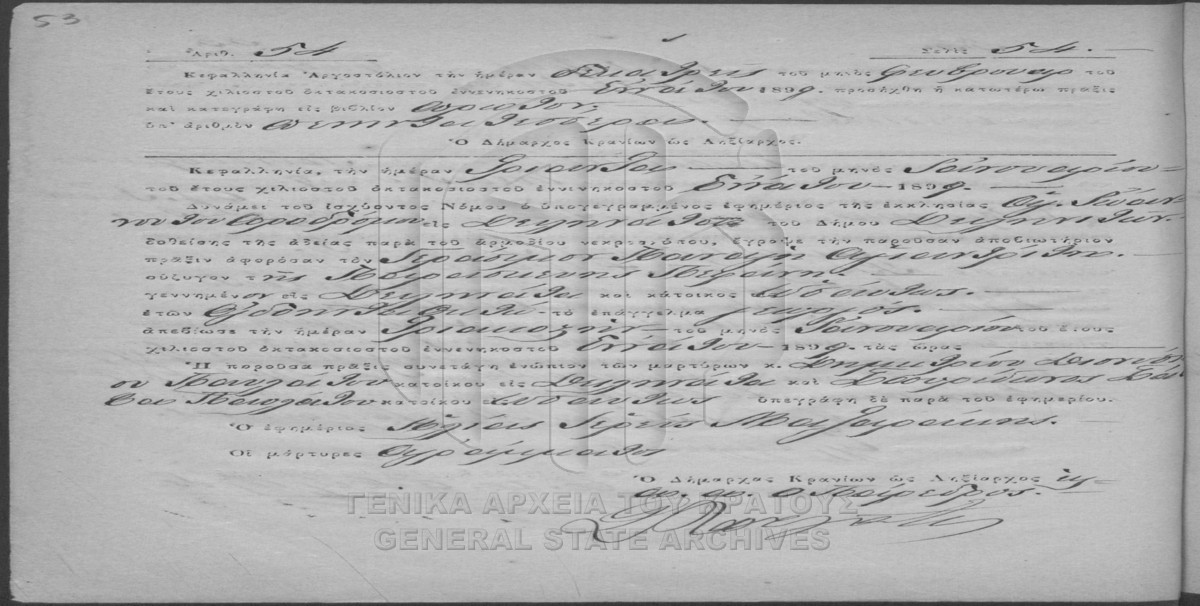 53
Ἀριθ. 54 Σελὶς 54.
Κεφαλληνία Ἀργοστόλιον τὴν ἡμέραν δεκατρεῖς τοῦ μηνὸς Φευρουαρ τοῦ
ἔτους χιλιοστοῦ ὀκτακοσιοστοῦ ἐννενηκοστοῦ Ἐννάτου 1899. προσήχθη ἡ κατωτέρω πρᾶξις
καὶ κατεγράφη εἰς βιβλίον
ὑπ' ἀριθμὸν πενηντατέσσερα.
Ὁ Δήμαρχος Κρανίων ὡς Ληξίαρχος.
Κεφαλληνία, τὴν ἡμέραν Τριάντα τοῦ μηνὸς Ἰανουαρίου
τοῦ ἔτους χιλιοστοῦ ὀκτακοσιοστοῦ ἐννενηκοστοῦ Ἐννάτου 1899.
Δυνάμει τοῦ ἰσχύοντος Νόμου ὁ ὑπογεγραμμένος ἐφημέριος τῆς ἐκκλησίας Ἁγ. Ἰωάν
νου τοῦ Προδρόμου εἰς τοῦ Δήμου
δοθείσης τῆς ἀδείας παρὰ τοῦ ἁρμοδίου νεκροσκόπου, ἔγραψε τὴν παροῦσαν ἀποβιωτήριον
πρᾶξιν ἀφορῶσαν τὸν Γεράσιμον Παναγῆ
σύζυγον τῆς Παρασκευῆς
γεννημένον εἰς καὶ κάτοικος ὡσαύτως.
ἐτῶν τὸ ἐπάγγελμα γεωργός.
ἀπεβίωσε τὴν ἡμέραν τοῦ μηνὸς Ἰανουαρίου τοῦ ἔτους
χιλιοστοῦ ὀκτακοσιοστοῦ ἐννενηκοστοῦ Ἐννάτου 1899. τὰς ὥρας
Ἡ παροῦσα πρᾶξις συνετάγη ἐνώπιον τῶν μαρτύρων κ. Δημητρίου Διονυσ
ου Παυλάτου κατοίκου εἰς καὶ Σπυρίδωνος
Παυλάτου κατοίκου ὡσαύτως ὑπεγράφη δὲ παρὰ τοῦ ἐφημερίου.
Ὁ ἐφημέριος Ἠλίας Ἱερεὺς Μαζαράκης.
Οἱ μάρτυρες ἀγράμματοι
Ὁ Δήμαρχος Κρανίων ὡς Ληξίαρχος
ὁ Πάρεδρος.
ΓΕΝΙΚΑ ΑΡΧΕΙΑ ΤΟΥ ΚΡΑΤΟΥΣ
GENERAL STATE ARCHIVES